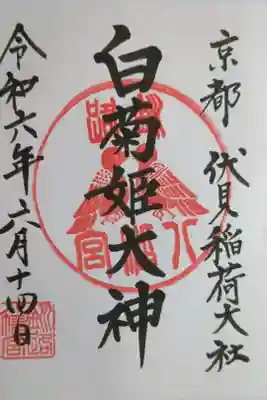 京都 伏見稲荷大社
白菊姫大神
令和六年六月十四日